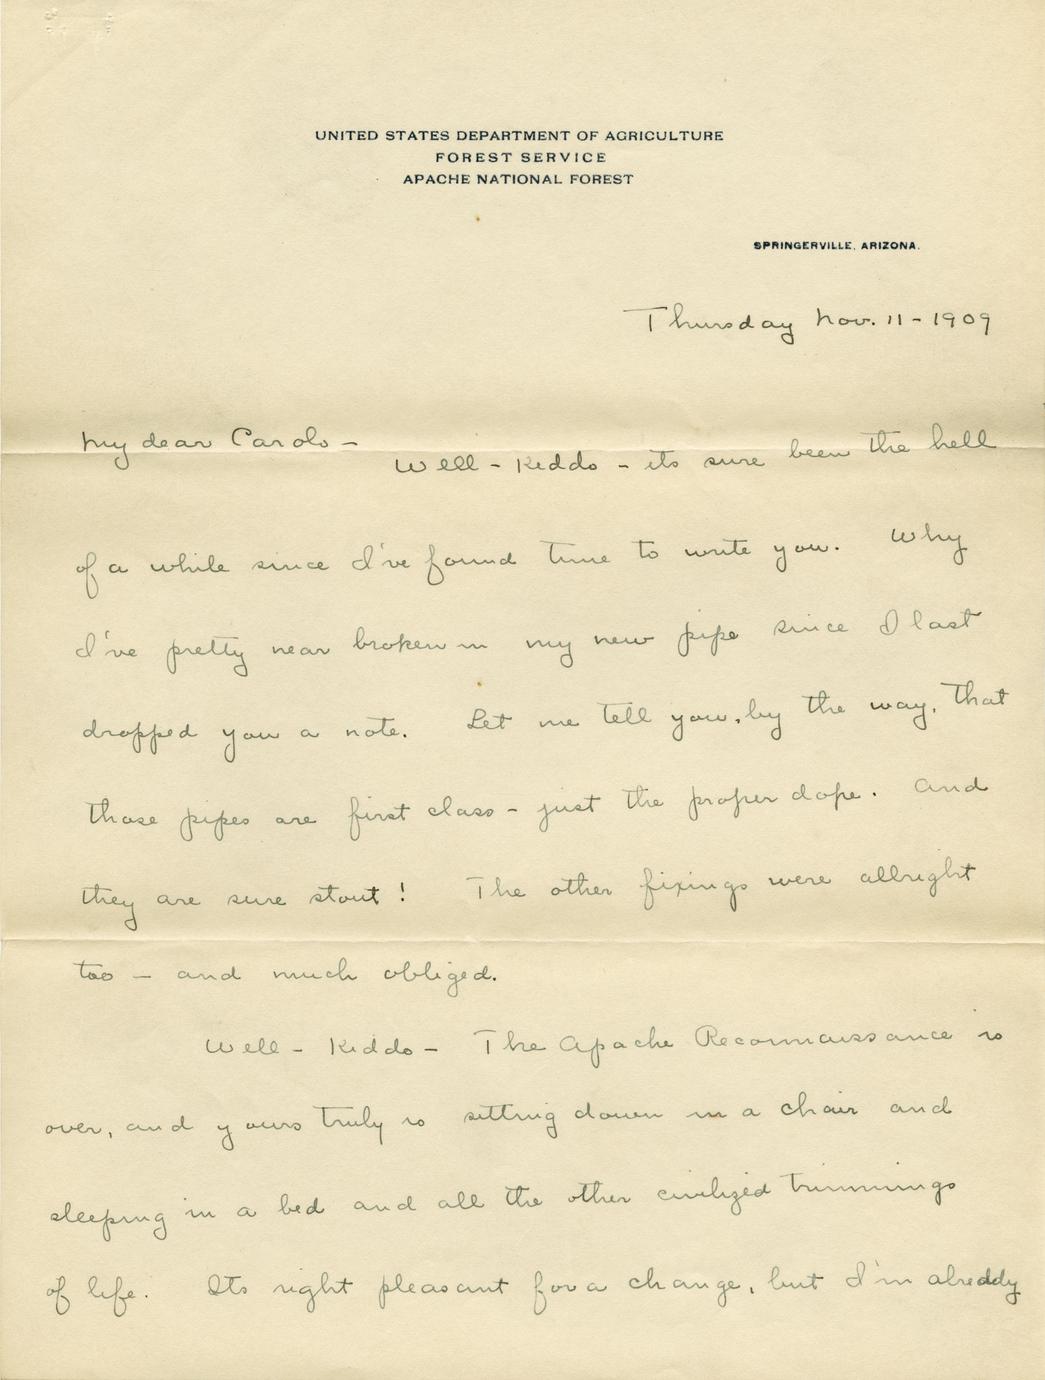 UNITED STATES DEPARTMENT OF AGRICULTURE
FOREST SERVICE
APACHE NATIONAL FOREST
SPRINGERVILLE, ARIZONA.
Thursday Nov. 11 - 1909
My dear Carolo -
Well - Kiddo - its sure been the hell
of a while since I've found time to write you. Why
I've pretty near broken in my new pipe since I last
dropped you a note. Let me tell you, by the way, that
those pipes are first class - just the proper dope. And
they are sure stout! The other fixings were allright
too - and much obliged.
Well - Kiddo - The Apache Reconnaissance is
over, and yours truly is sitting down in a chair and
sleeping in a bed and all the other civilized trimmings
of life. Its right pleasant for a change, but I'm alreddy